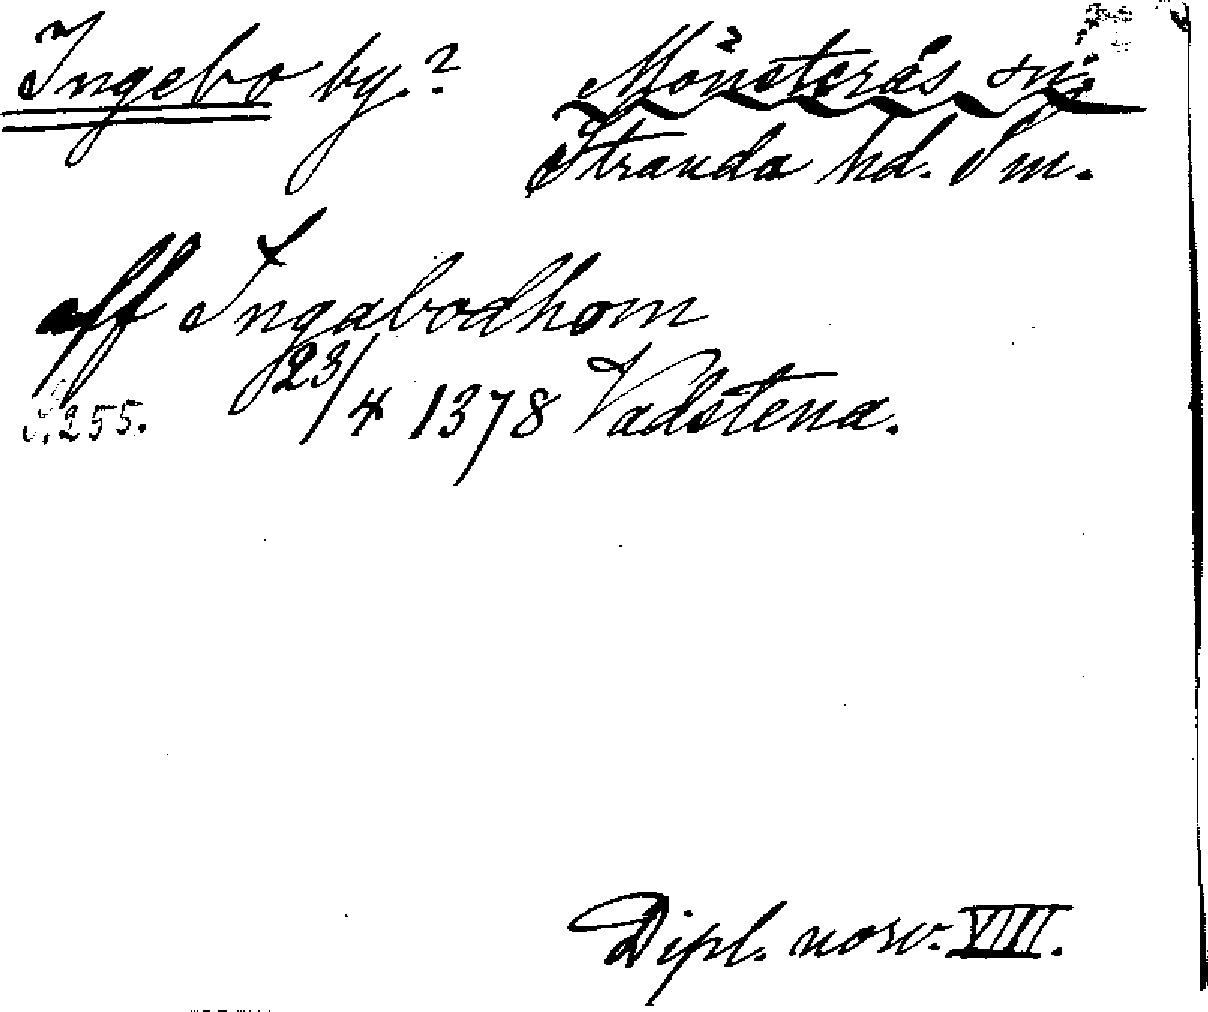 Ingebo by.? Mönsterås sn.
Stranda hd. Sm.
aff Ingabodhom
S. 255. 23/4 1378 Vadstena.
Dipl. norv. VIII.